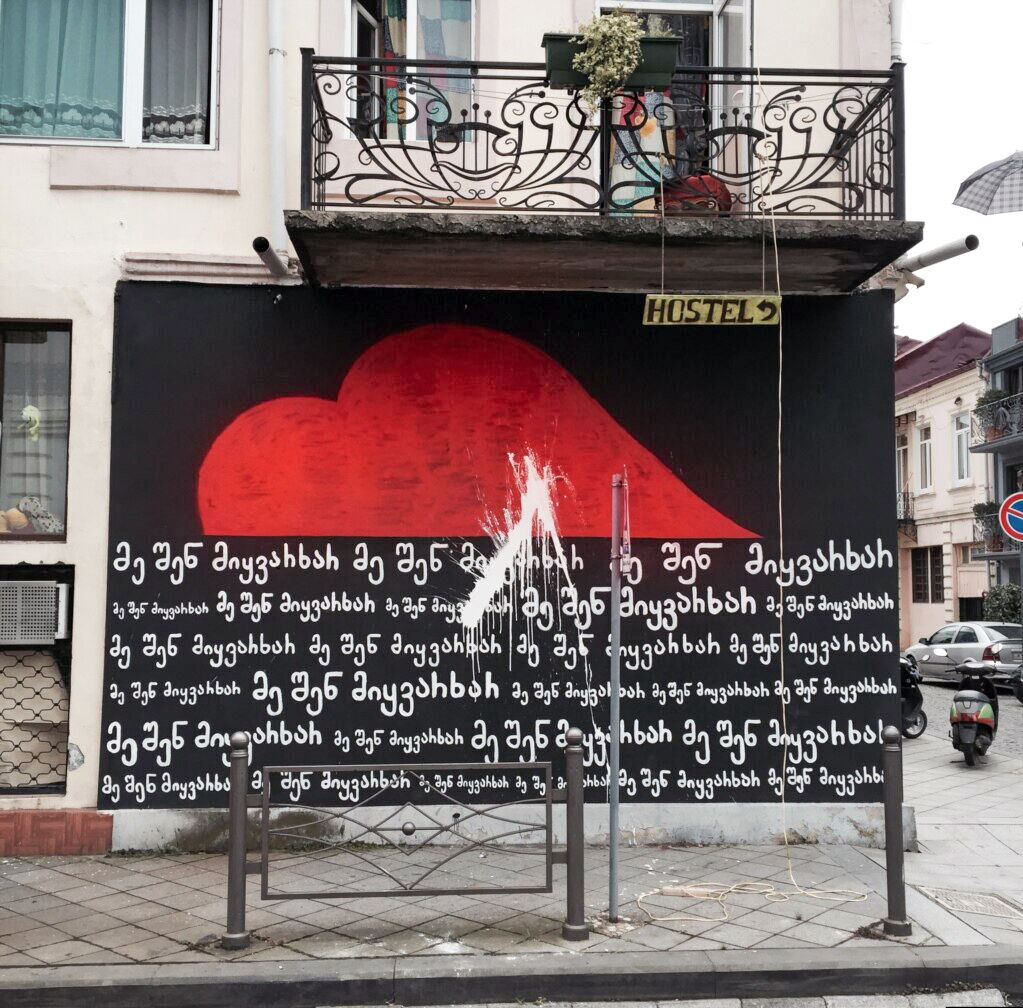 HOSTEL
მე შენ მიყვარხარ მე შენ მიყვარხარ მე შენ მიყვარხარ
მე შენ მიყვარხარ მე შენ მიყვარხარ მე შენ მიყვარხარ მე შენ მიყვარხარ მე შენ მიყვარხარ
მე შენ მიყვარხარ მე შენ მიყვარხარ მე შენ მიყვარხარ მე შენ მიყვარხარ
მე შენ მიყვარხარ მე შენ მიყვარხარ მე შენ მიყვარხარ მე შენ მიყვარხარ მე შენ მიყვარხარ
მე შენ მიყვარხარ მე შენ მიყვარხარ მე შენ მიყვარხარ მე შენ მიყვარხარ
მე შენ მიყვარხარ მე შენ მიყვარხარ მე შენ მიყვარხარ მე შენ მე შენ მიყვარხარ მე შენ მიყვარხარ